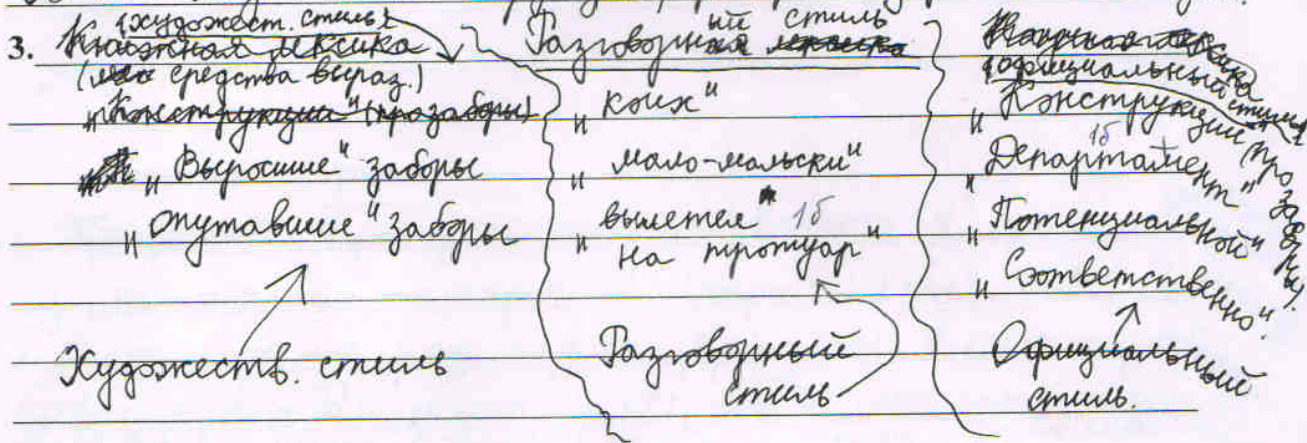 3. (художест. стиль)
Книжная лексика
(средства выраз.)
„Конструкции" (про заборы)
„Выросшие" заборы
„опутавшие" заборы
Художеств. стиль
Разговорный стиль
„коих"
„мало-мальски"
„вылетел 1б
на тротуар"
Разговорный
стиль
(официальный стиль)
„Конструкции" (про заборы)
1б
„Департамент"
„Потенциальной"
„Соответственно"
Официальный
стиль.